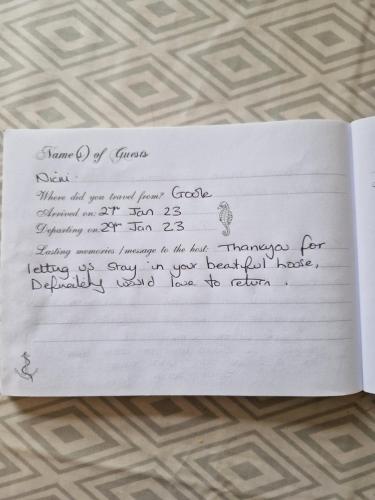 Name(s) of Guests
Nicki.
Where did you travel from? Goole
Arrived on: 27th Jan 23
Departing on: 29th Jan 23
Lasting memories / message to the host: Thankyou for
letting us stay in your beautiful house,
Definitely would love to return.